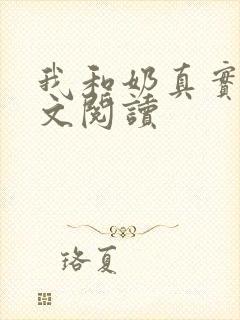 我和奶真實
文閱讀
珞夏